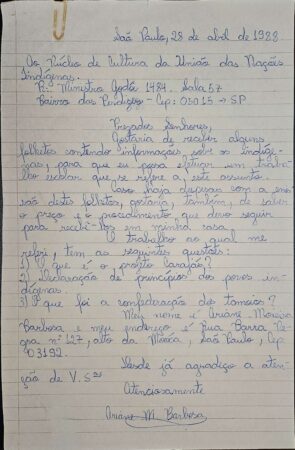 São Paulo, 28 de abril de 1988
Ao Núcleo de Cultura da União das Nações
Indígenas.
R: Ministro Godói 1484. Sala 57
Bairro das Perdizes - Cep: 05015 → SP
Prezados Senhores,
Gostaria de receber alguns
folhetos contendo informações sobre os indíge-
nas, para que eu possa efetuar um traba-
lho escolar que se refere a este assunto.
Caso haja despesas com a emis
são destes folhetos, gostaria, também, de saber
o preço e o procedimento que devo seguir
para recebê-los em minha casa.
O trabalho ao qual me
referi, tem as seguintes questões:
1) O que é o projeto Carajás?
2) Declaração de princípios dos povos in-
dígenas.
3) O que foi a confederação dos tamoios?
Meu nome é Ariane Moreira
Barbosa e meu endereço é Rua Barra Ne-
gra nº 127, alto da Moóca, São Paulo, Cep:
03192.
Desde já agradeço a aten-
ção de V. Sas
Atenciosamente
Ariane M. Barbosa